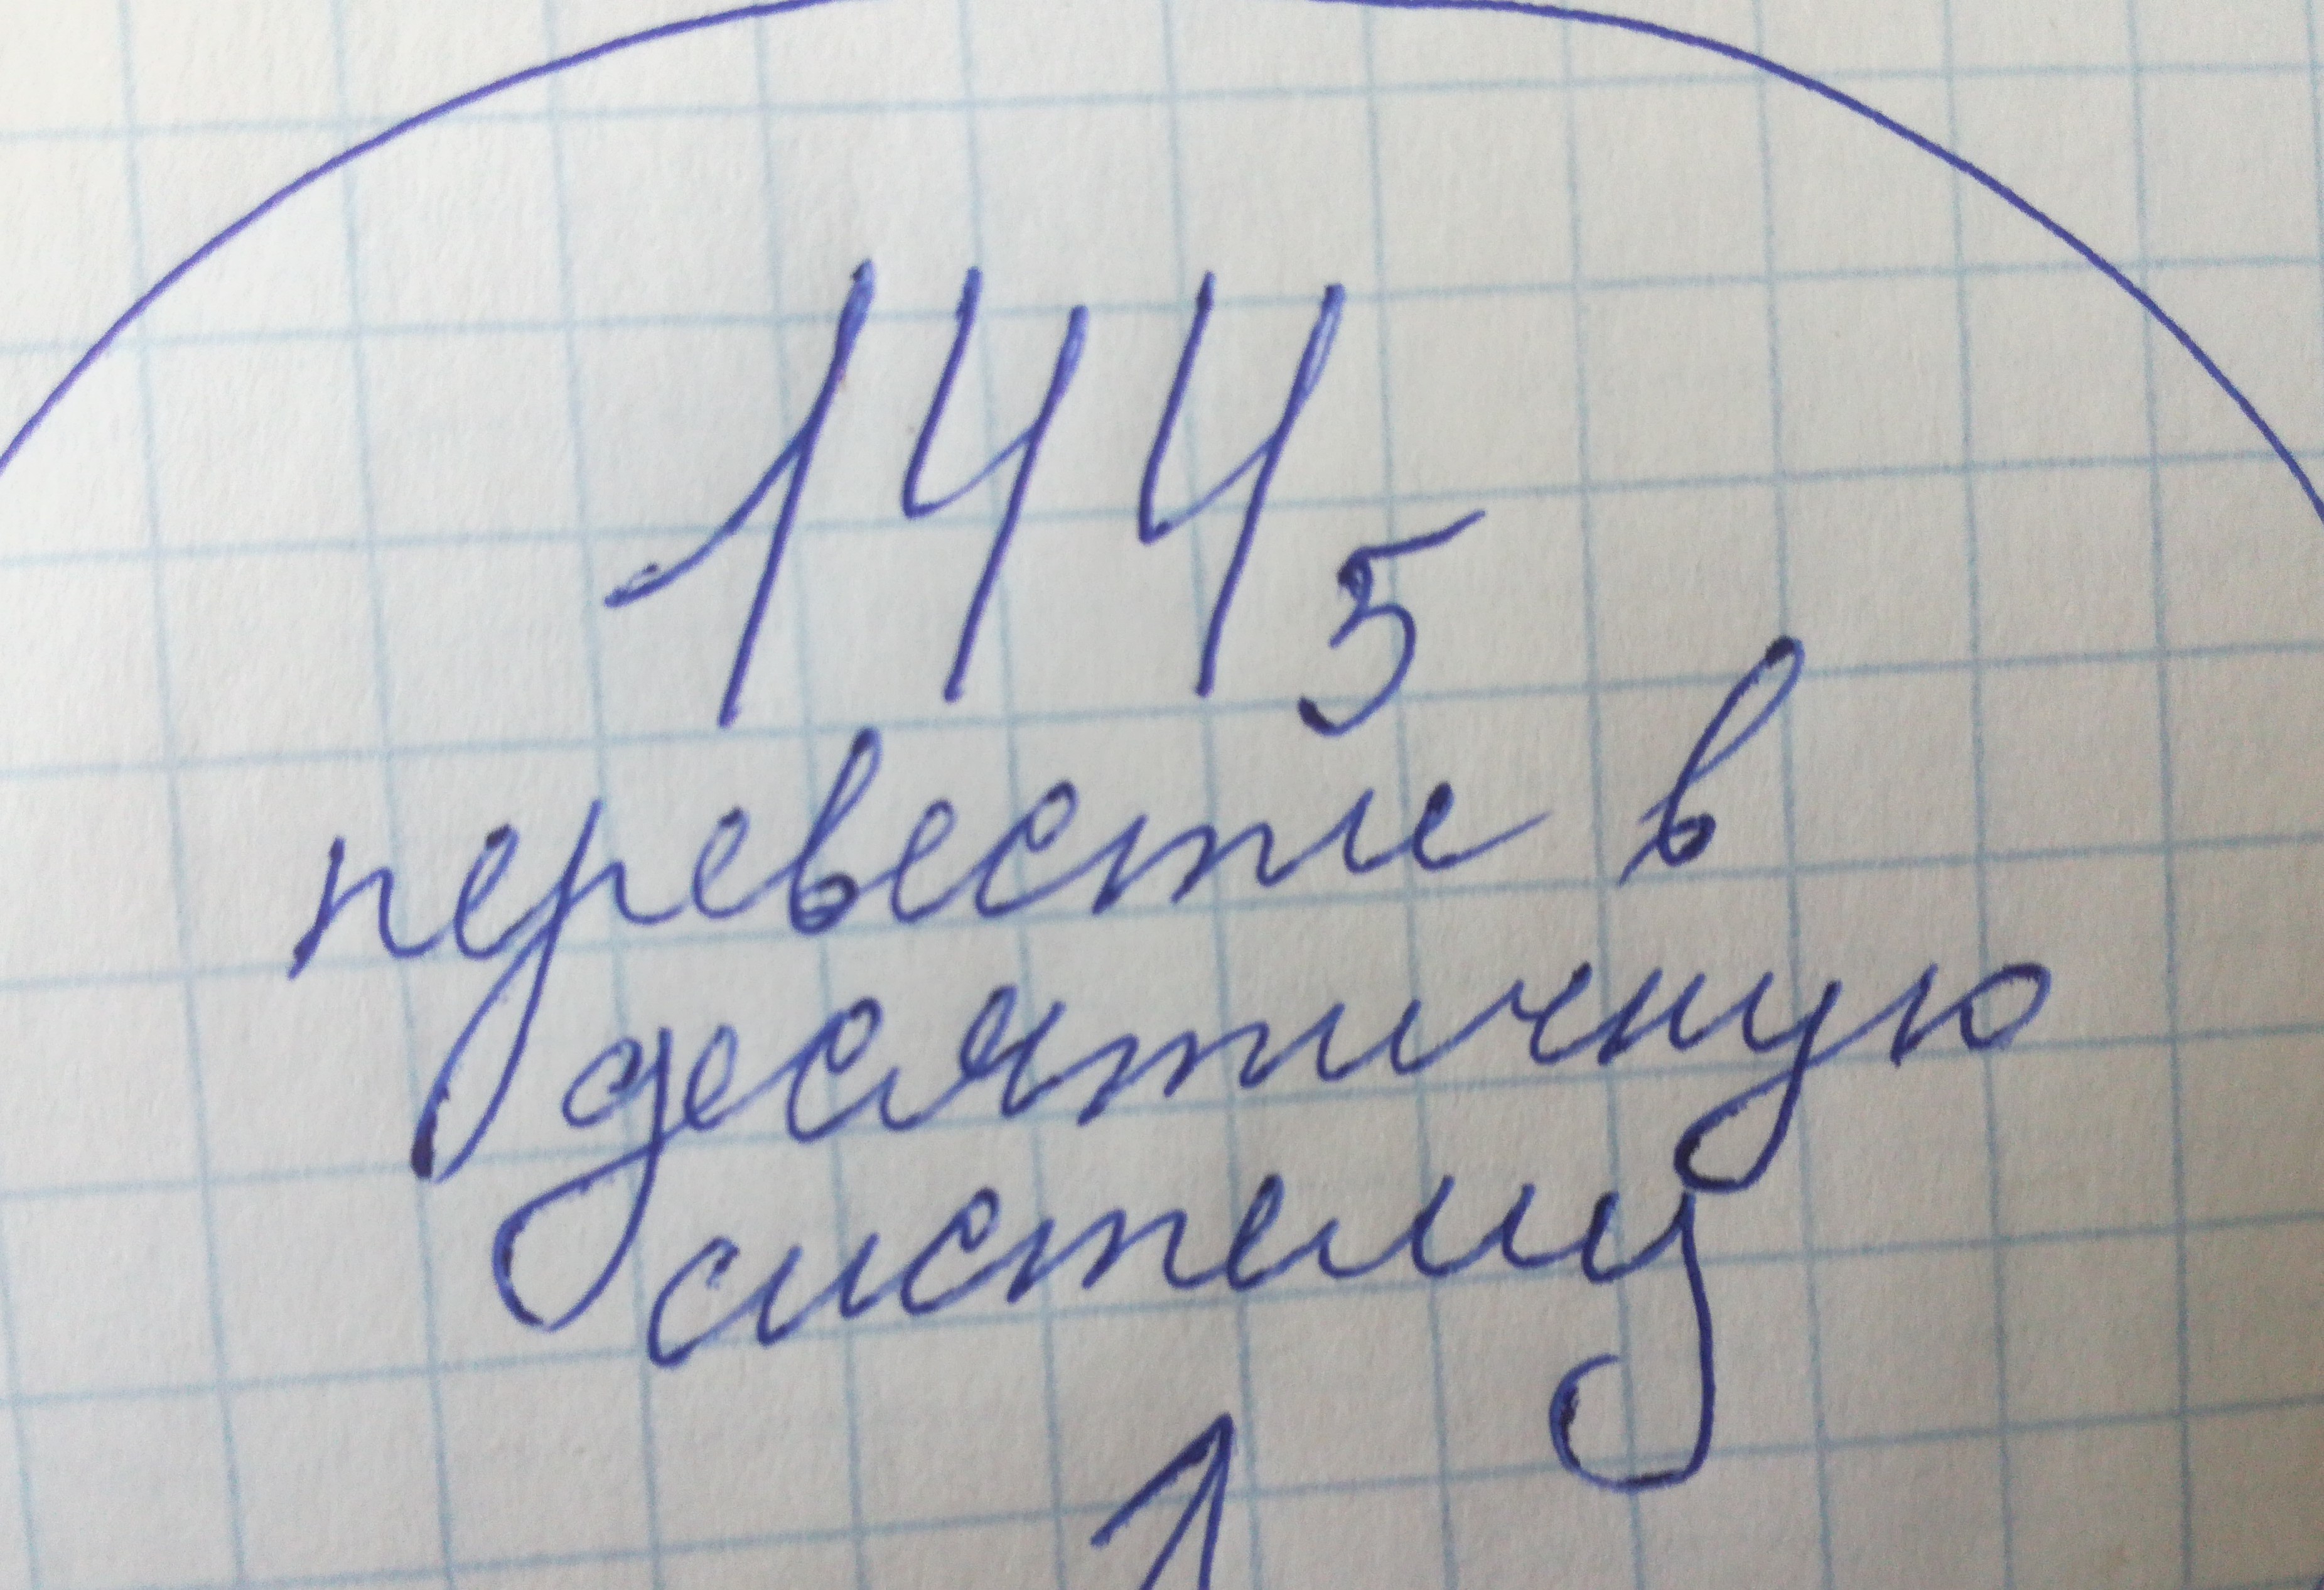 144₅
перевести в
десятичную
систему
1